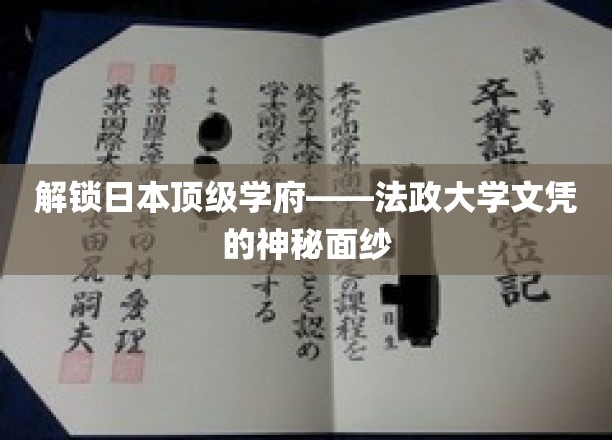 解锁日本顶级学府——法政大学文凭
的神秘面纱
第 号
卒業証書 学位記
本学商学部商学科 定の課程を
修めて本学を ことを認め
学士(商学)の学 する
平成
東京国際大学商 田村愛理
東京国際大学長 田尻嗣夫